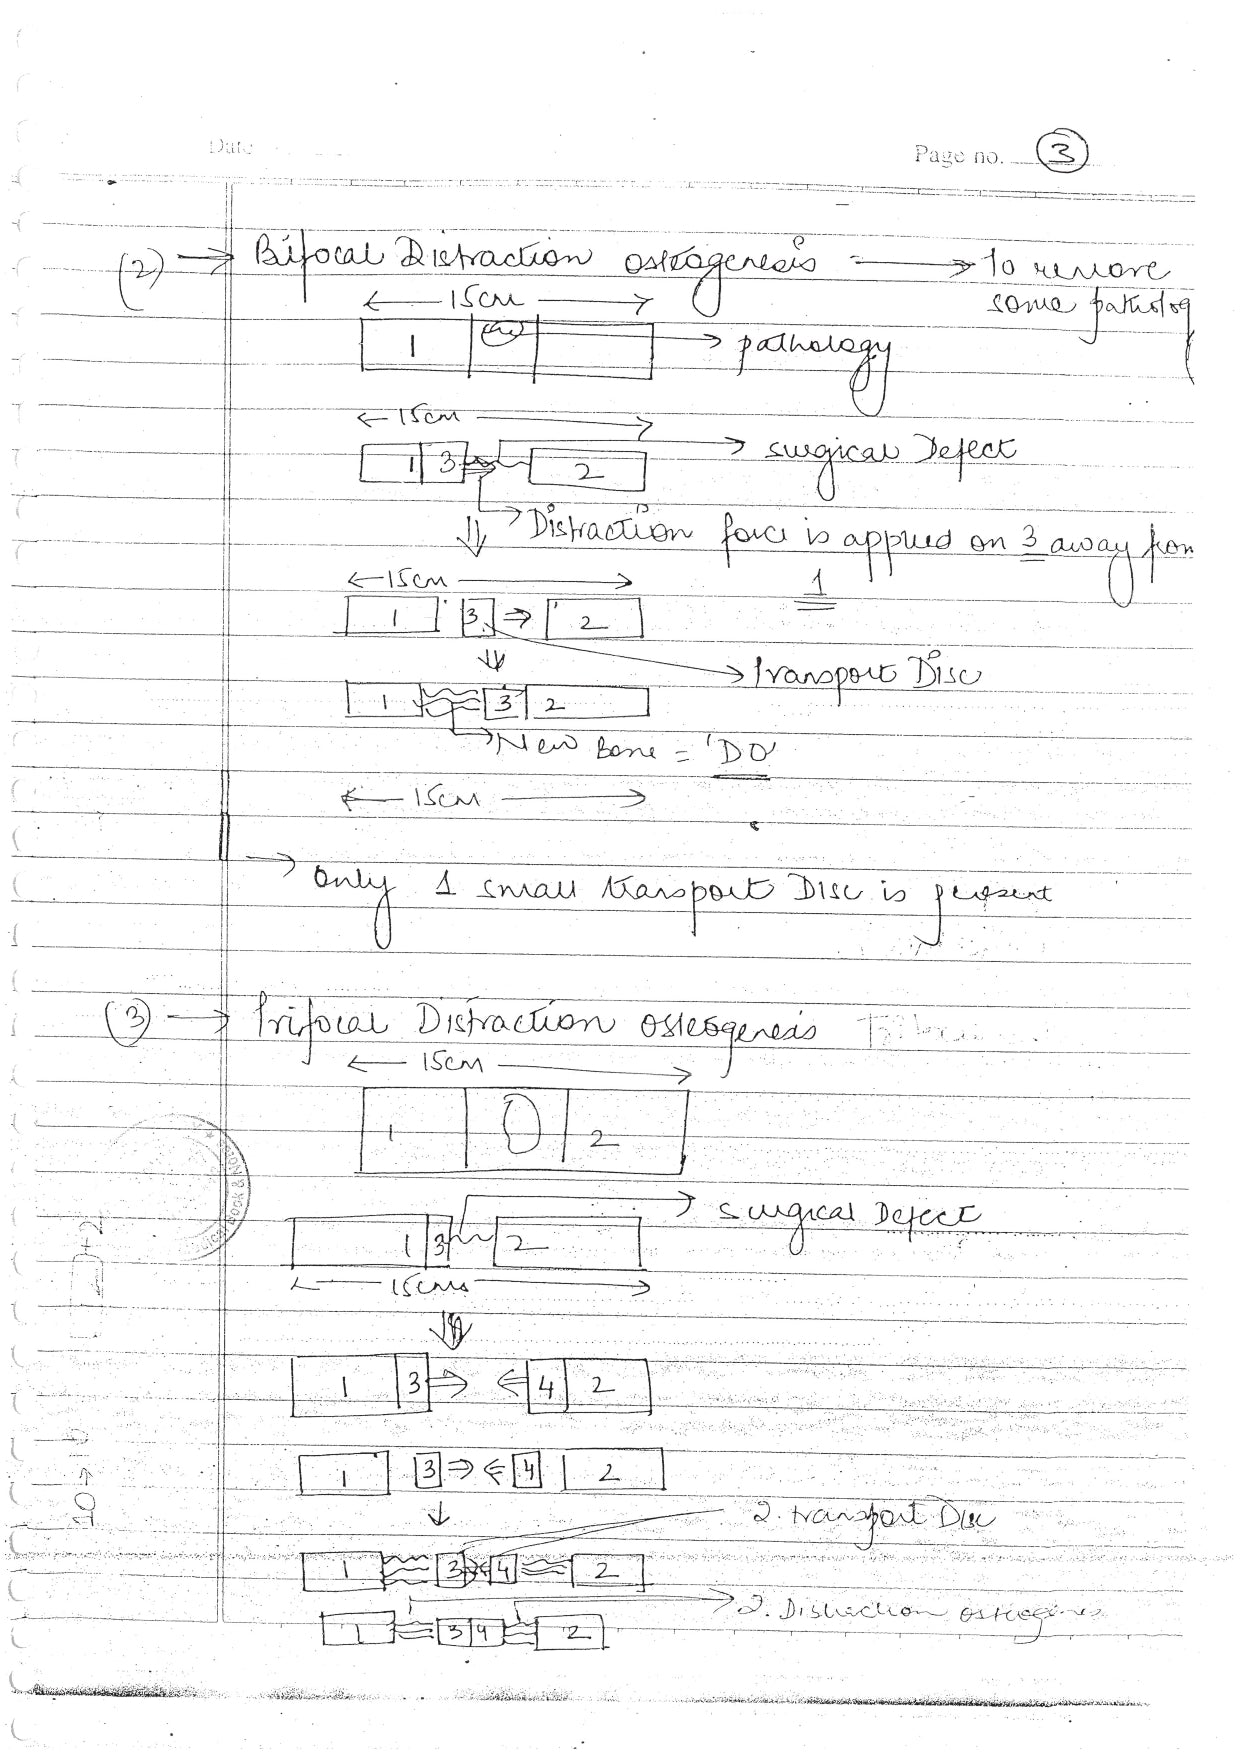 Date
Page no. 3
(2) → Bifocal Distraction osteogenesis → To remove
some patholog
← 15cm →
1
→ pathology
← 15cm →
1 3 2
→ surgical Defect
→ Distraction force is applied on 3 away from
1
← 15cm →
1 3 ⇒ 2
→ Transport Disc
1 3 2
→ New Bone = 'DO'
← 15cm →
→ only 1 small transport Disc is present
(3) → Trifocal Distraction osteogenesis
← 15cm →
1 2
→ surgical Defect
1 3 2
← 15cms →
1 3 ⇒ ⇐ 4 2
1 3 ⇒ ⇐ 4 2
2. transport Disc
1 3 4 2
→ 2. Distraction osteogenes
1 3 4 2